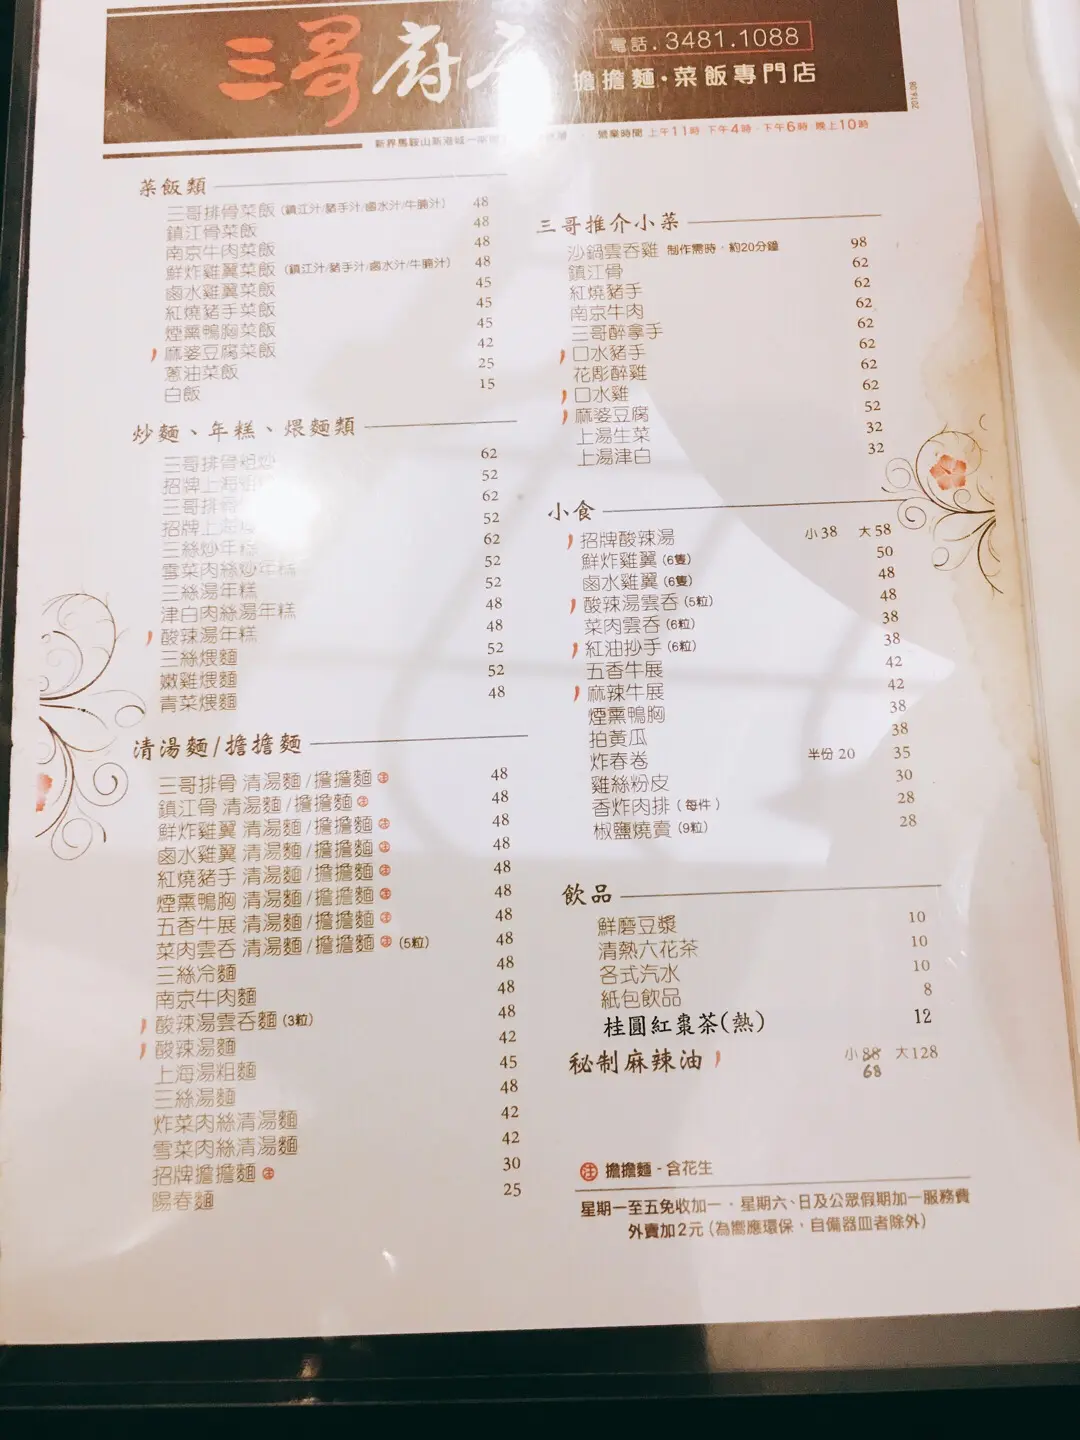 三哥廚
電話.3481.1088
擔擔麵·菜飯專門店
2016.08
新界馬鞍山新港城一
營業時間 上午11時 下午4時·下午6時 晚上10時
菜飯類
三哥排骨菜飯(鎮江汁/豬手汁/鹵水汁/牛腩汁) 48
鎮江骨菜飯 48
南京牛肉菜飯 48
鮮炸雞翼菜飯(鎮江汁/豬手汁/鹵水汁/牛腩汁) 48
鹵水雞翼菜飯 45
紅燒豬手菜飯 45
煙熏鴨胸菜飯 45
麻婆豆腐菜飯 42
蔥油菜飯 25
白飯 15
炒麵、年糕、煨麵類
三哥排骨粗炒 62
招牌上海粗 52
三哥排骨 62
招牌上海 52
三絲炒年糕 62
雪菜肉絲炒年糕 52
三絲湯年糕 52
津白肉絲湯年糕 48
酸辣湯年糕 48
三絲煨麵 52
嫩雞煨麵 52
青菜煨麵 48
清湯麵/擔擔麵
三哥排骨 清湯麵/擔擔麵 注 48
鎮江骨 清湯麵/擔擔麵 注 48
鮮炸雞翼 清湯麵/擔擔麵 注 48
鹵水雞翼 清湯麵/擔擔麵 注 48
紅燒豬手 清湯麵/擔擔麵 注 48
煙熏鴨胸 清湯麵/擔擔麵 注 48
五香牛展 清湯麵/擔擔麵 注 48
菜肉雲吞 清湯麵/擔擔麵 注 (5粒) 48
三絲冷麵 48
南京牛肉麵 48
酸辣湯雲吞麵(3粒) 48
酸辣湯麵 42
上海湯粗麵 45
三絲湯麵 48
炸菜肉絲清湯麵 42
雪菜肉絲清湯麵 42
招牌擔擔麵 注 30
陽春麵 25
三哥推介小菜
沙鍋雲吞雞 制作需時·約20分鐘 98
鎮江骨 62
紅燒豬手 62
南京牛肉 62
三哥醉拿手 62
口水豬手 62
花彫醉雞 62
口水雞 62
麻婆豆腐 52
上湯生菜 32
上湯津白 32
小食
招牌酸辣湯 小38 大58
鮮炸雞翼(6隻) 50
鹵水雞翼(6隻) 48
酸辣湯雲吞(5粒) 48
菜肉雲吞(6粒) 38
紅油抄手(6粒) 38
五香牛展 42
麻辣牛展 42
煙熏鴨胸 38
拍黃瓜 38
炸春卷 半份20 35
雞絲粉皮 30
香炸肉排(每件) 28
椒鹽燒賣(9粒) 28
飲品
鮮磨豆漿 10
清熱六花茶 10
各式汽水 10
紙包飲品 8
桂圓紅棗茶(熱) 12
秘制麻辣油 小88 大128
68
注 擔擔麵-含花生
星期一至五免收加一·星期六、日及公眾假期加一服務費
外賣加2元(為嚮應環保,自備器皿者除外)